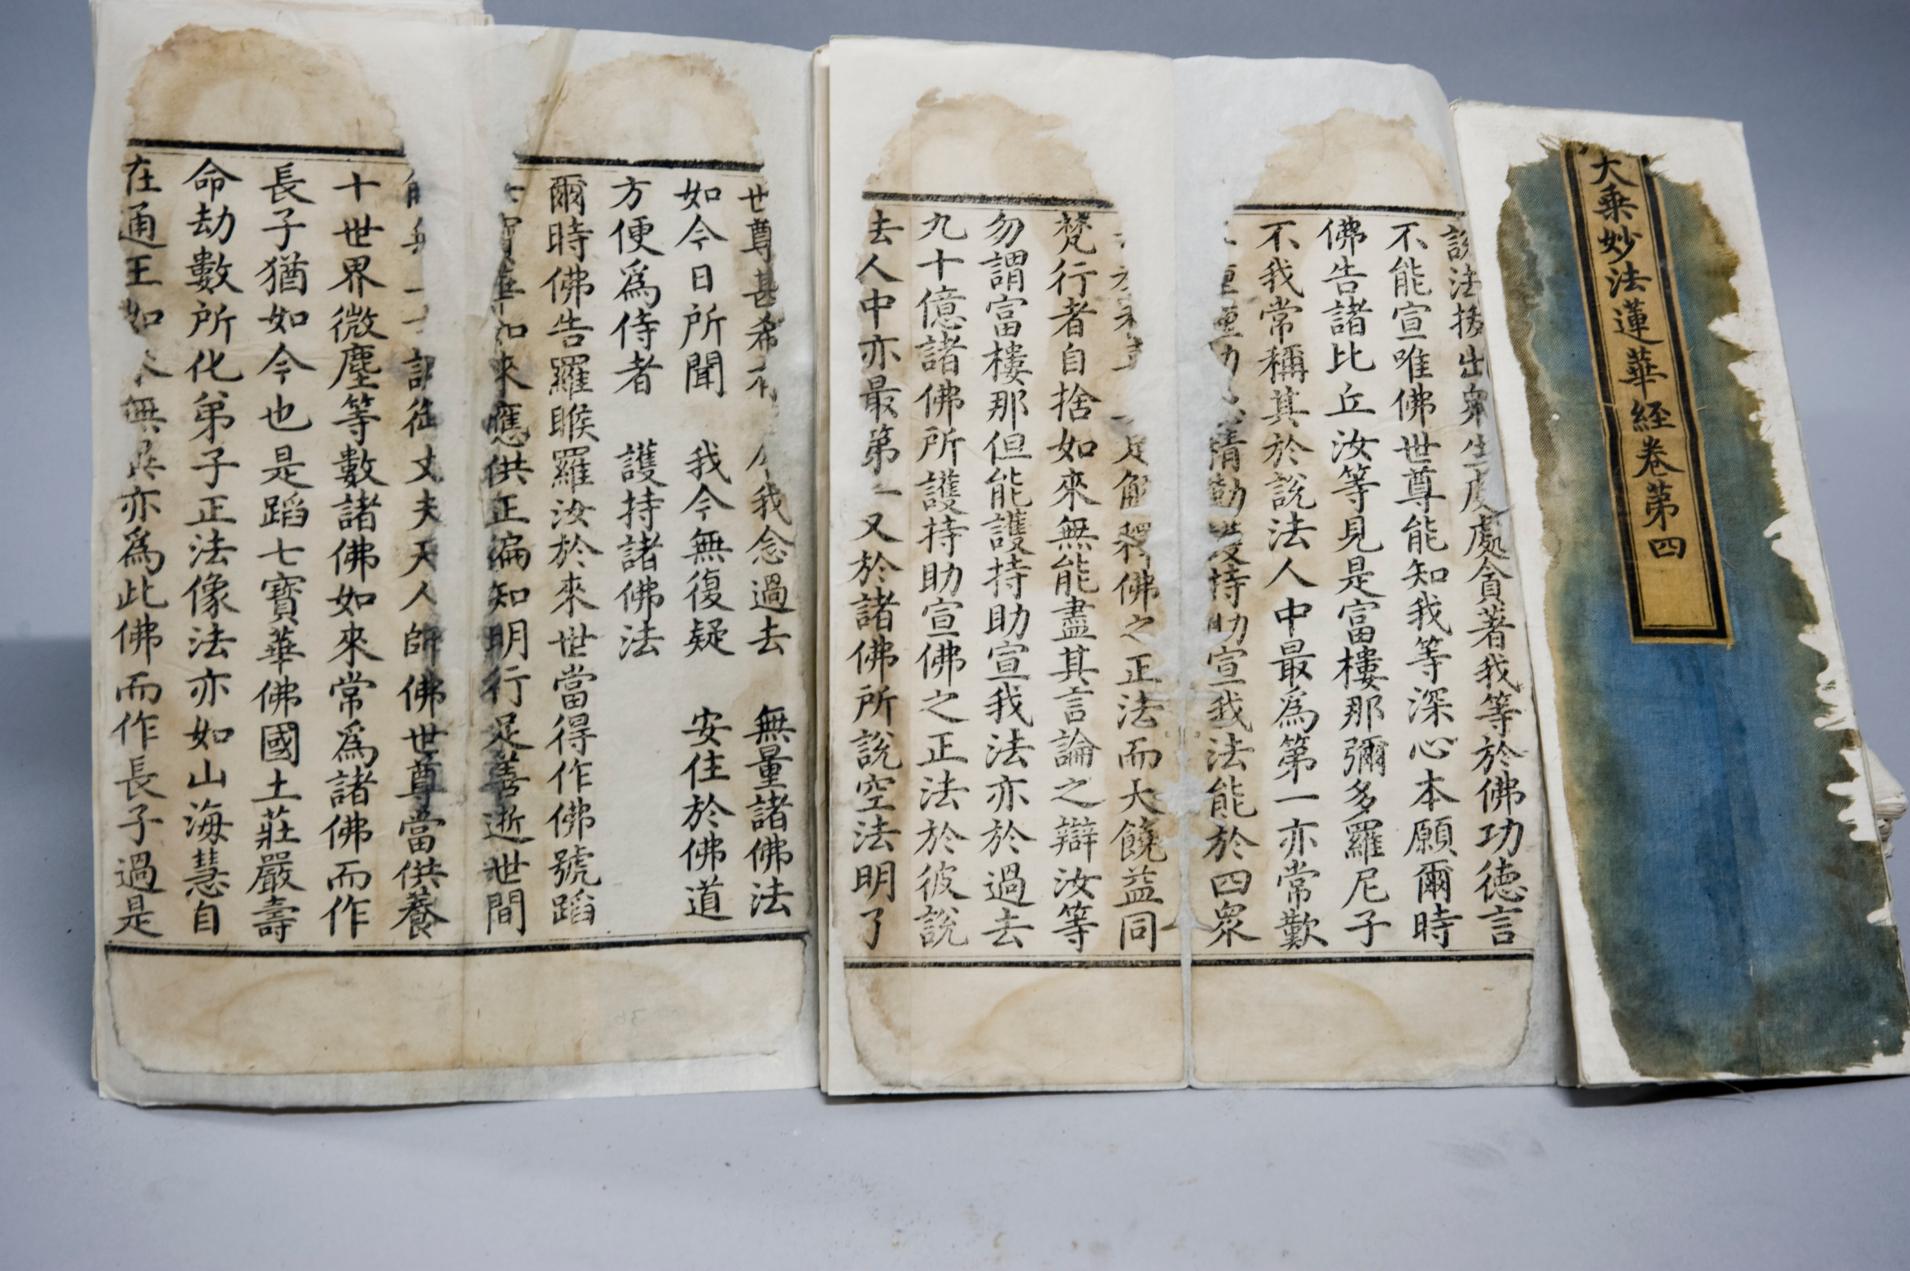 大乘妙法蓮華経卷第四
說法拔出衆生處處貪著我等於佛功徳言
不能宣唯佛世尊能知我等深心本願爾時
佛告諸比丘汝等見是富樓那彌多羅尼子
不我常稱其於說法人中最爲第一亦常歎
精勤護持助宣我法能於四衆
解釋佛之正法而大饒益同
梵行者自捨如來無能盡其言論之辯汝等
勿謂富樓那但能護持助宣我法亦於過去
九十億諸佛所護持助宣佛之正法於彼說
法人中亦最第一又於諸佛所說空法明了
世尊甚希有 令我念過去 無量諸佛法
如今日所聞 我今無復疑 安住於佛道
方便爲侍者 護持諸佛法
爾時佛告羅睺羅汝於來世當得作佛號蹈
七寶華如來應供正徧知明行足善逝世間
解無上士調御丈夫天人師佛世尊當供養
十世界微塵等數諸佛如來常爲諸佛而作
長子猶如今也是蹈七寶華佛國土莊嚴壽
命劫數所化弟子正法像法亦如山海慧自
在通王如來無異亦爲此佛而作長子過是